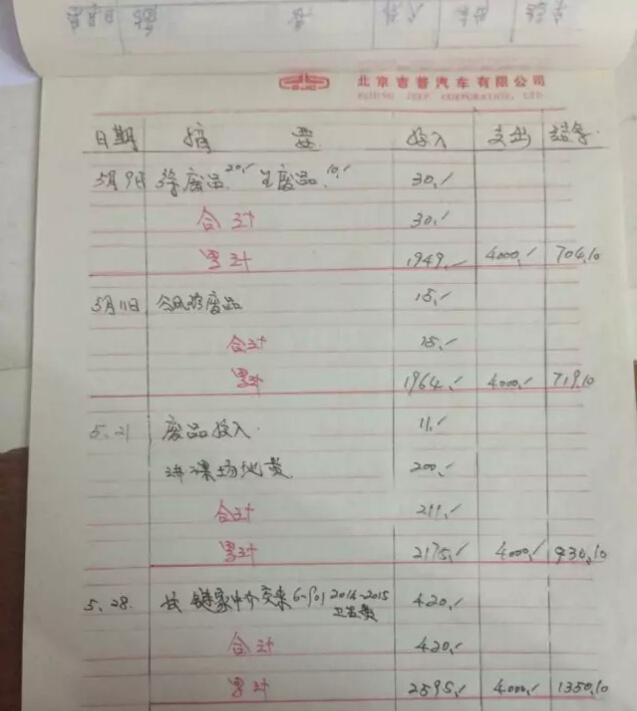 北京吉普汽车有限公司
BEIJING JEEP CORPORATION, LTD.
日期 摘要 收入 支出 结余
5月9日 废品 20.- 废品 10.- 30.-
合计 30.-
累计 1949.- 4000.- 704.10
5月11日 废品 15.-
合计 15.-
累计 1964.- 4000.- 719.10
5.21 废品收入. 11.-
讲课场地费 200.-
合计 211.-
累计 2175.- 4000.- 930.10
5.28. 链家中介交来 6-901 2014-2015 420.-
卫生费
合计 420.-
累计 2595.- 4000.- 1350.10